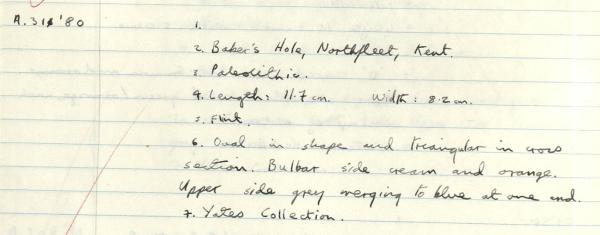 A.31 '80
1.
2. Baker's Hole, Northfleet, Kent.
3. Paleolithic.
4. Length: 11.7 cm. Width: 8.2 cm.
5. Flint.
6. Oval in shape and triangular in cross
section. Bulbar side cream and orange.
Upper side grey merging to blue at one end.
7. Yates Collection.